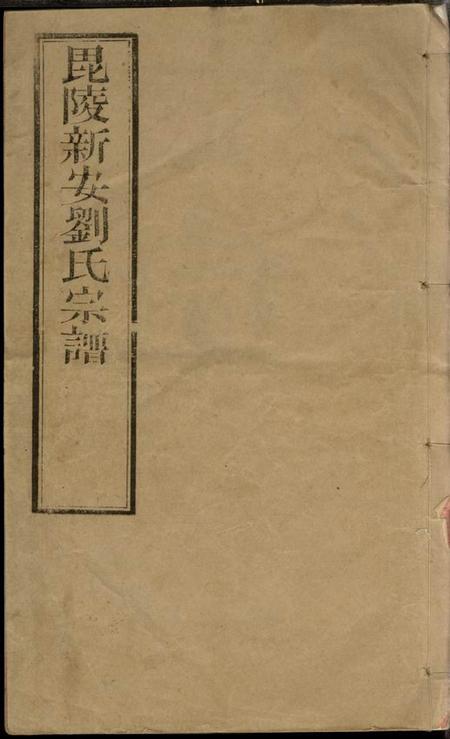 毘陵新安劉氏宗譜